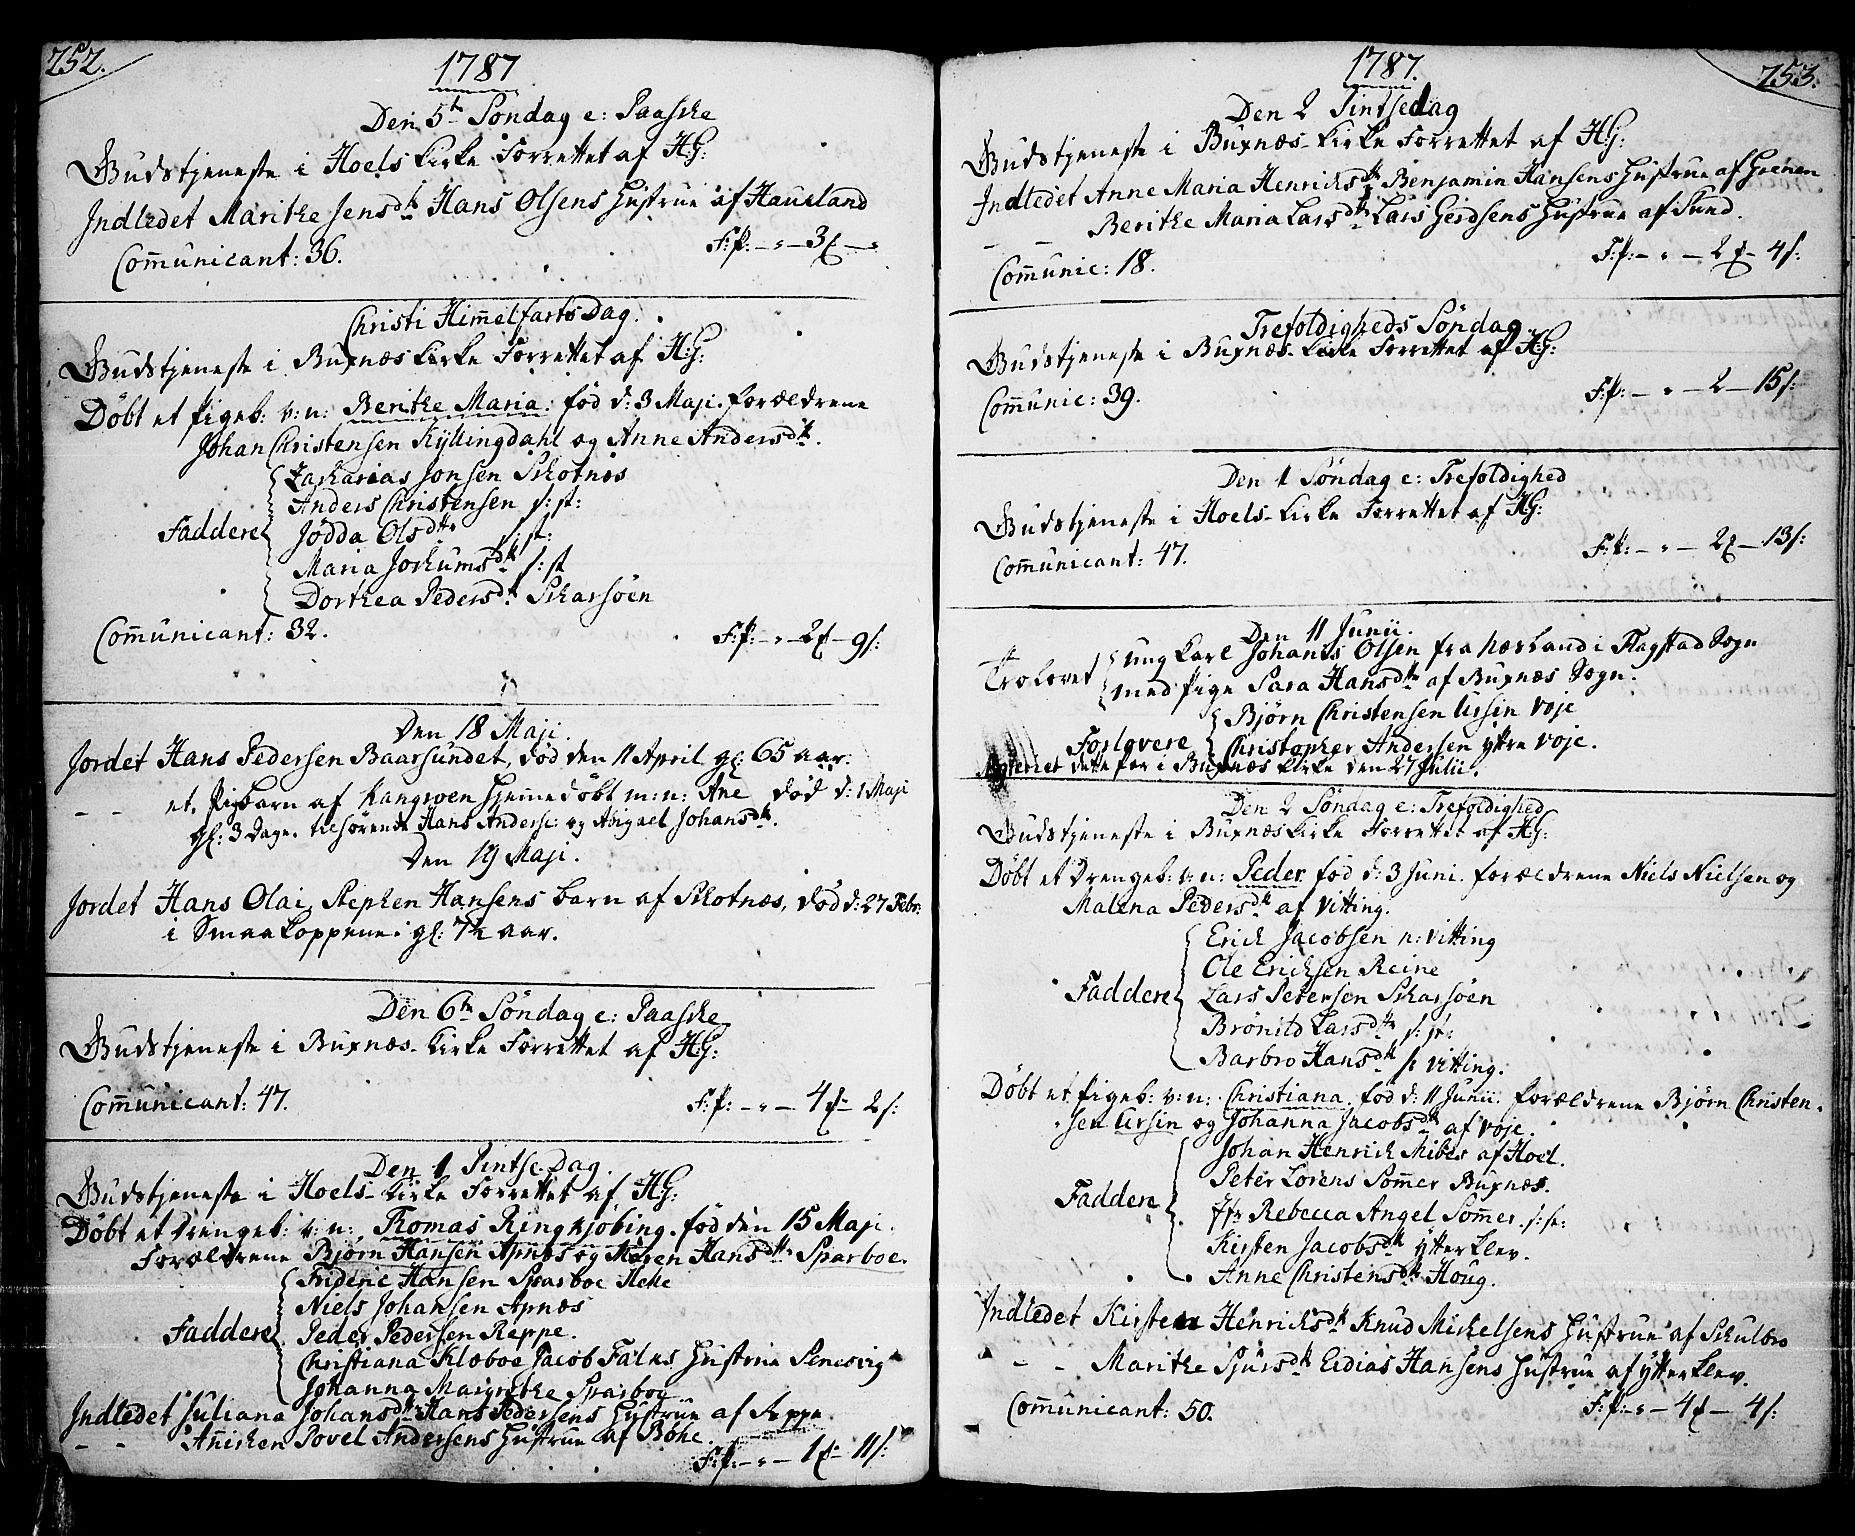 252.
1787
Den 5te Søndag e: Paaske
Gudstjeneste i Hoels Kirke Forrettet af H:G:
Indledet Marithe Jensdtr Hans Olsens Hustrue af Haueland
Communicant: 36. F:P: — " — 3 — "
Christi Himmelfarts Dag.
Gudstjeneste i Buxnæs Kirke Forrettet af H:G:
Døbt et Pigeb: v: n: Berithe Maria. fød d: 3 Maji. Forældrene
Johan Christensen Kyllingdahl og Anne Andersdtr.
Zacharias Jonsen Skotnæs
Anders Christensen s: st:
Faddere Jødda Olsdtr s: st:
Maria Jochumsdtr s: st
Dorthea Pedersdtr Skarsøen
Communicant: 32. F:P: — " — 2 — 9 s:
Den 18 Maji.
Jordet Hans Pedersen Baarsundet, død den 11 April gl: 65 aar.
— — et Pigebarn af Kangsoen hjemmedøbt m: n: Ane død d: 1 Maji
gl: 3 Dage. tilhørende Hans Anderse: og Abigael Johansdtr.
Den 19 Maji.
Jordet Hans Olai, Stephen Hansens barn af Skotnæs, død d: 27 Febr:
i Smaakoppene i gl: 7½ aar.
Den 6te Søndag e: Paaske
Gudstjeneste i Buxnæs Kirke Forrettet af H:G:
Communicant: 47. F:P: — " — 4 — 2 s:
Den 1 Pintse Dag.
Gudstjeneste i Hoels Kirke Forrettet af H:G:
Døbt et Drengeb: v: n: Thomas Ringkjøbing. fød den 15 Maji.
Forældrene Bjørn Hansen Apnæs og Maren Hansdtr Sparboe.
Frideric Hansen Sparboe Helle
Niels Johansen Apnæs
Faddere Peder Pedersen Reppe.
Christiana Klæboe Jacob Falks Hustrue Stenesvig
Johanna Margrethe Sparboe
Indledet Juliana Johansdtr Hans Pedersens Hustrue af Reppe
— — Anichen Povel Andersens Hustrue af Bøhe.
F:P: — " — 1 — 11 s:
253.
1787.
Den 2 Pintsedag
Gudstjeneste i Buxnæs Kirke Forrettet af H:G:
Indledet Anne Maria Henrichsdtr Benjamin Hansens Hustrue af Grenen
— — Berithe Maria Larsdtr Lars Gerdsens Hustrue af Sund.
Communic: 18. F:P: — " — 2 — 4 s:
Trefoldigheds Søndag
Gudstjeneste i Buxnæs Kirke Forrettet af H:G:
Communic: 39. F:P: — " — 2 — 15 s:
Den 1 Søndag e: Trefoldighed
Gudstjeneste i Hoels Kirke Forrettet af H:G:
Communicant: 47. F:P: — " — 2 — 13 s:
Den 11 Junii.
Trolovet ung Karl Johanes Olsen fra Næsland i Flagstad Sogn
med Pige Sara Hansdtr af Buxnæs Sogn.
Forlovere Bjørn Christensen Ursin Voje
Christopher Andersen Yttre Voje.
dette Par i Buxnæs Kirke den 27 Julii.
Den 2 Søndag e: Trefoldighed
Gudstjeneste i Buxnæs Kirke Forrettet af H:G:
Døbt et Drengeb: v: n: Peder fød d: 3 Juni. Forældrene Niels Nielsen og
Malena Pedersdtr af Vitting.
Erick Jacobsen n: Vitting
Ole Ericksen Reine
Faddere Lars Petersen Skarsøen
Brønild Larsdtr s: st:
Barbro Hansdtr s: Vitting.
Døbt et Pigeb: v: n: Christiana. fød d: 11 Junii. Forældrene Bjørn Christen-
sen Ursin og Johanna Jacobsdtr af Voje.
Johan Henrick Mibes af Hoel.
Peter Lorens Sommer Buxnæs.
Faddere Jfr Rebecca Angel Sommer. s: st:
Kirsten Jacobsdtr Ytterklev.
Anne Christensdtr Houg.
Indledet Kirsten Henricksdtr Knud Mickelsens Hustrue af Skulbro
— — Marithe Sjursdtr Eidias Hansens Hustrue af Ytterklev.
Communicant: 50. F:P: — " — 4 — 4 s: